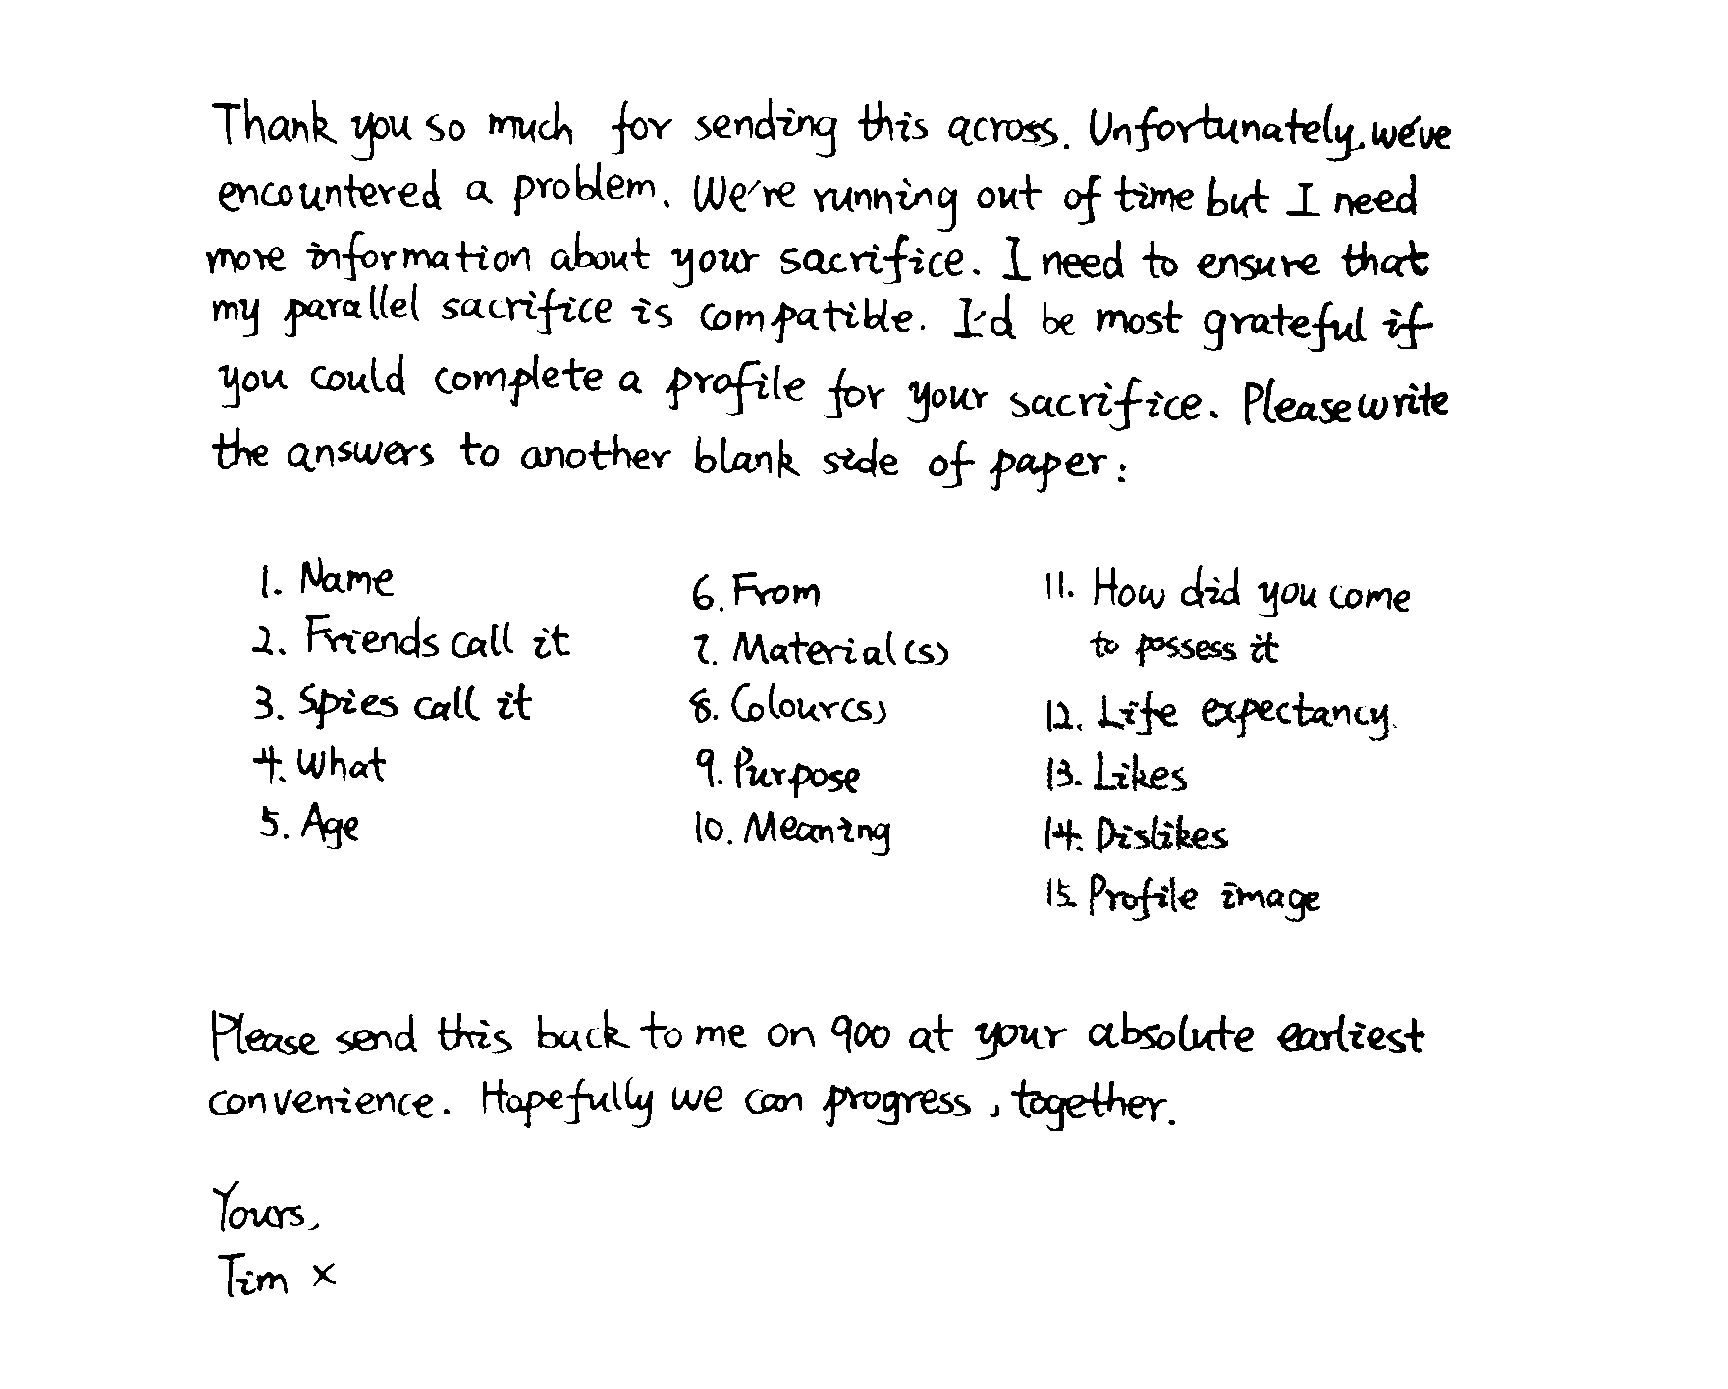 Thank you so much for sending this across. Unfortunately, we've
encountered a problem. We're running out of time but I need
more information about your sacrifice. I need to ensure that
my parallel sacrifice is compatible. I'd be most grateful if
you could complete a profile for your sacrifice. Please write
the answers to another blank side of paper:
1. Name
2. Friends call it
3. Spies call it
4. What
5. Age
6. From
7. Material(s)
8. Colour(s)
9. Purpose
10. Meaning
11. How did you come
to possess it
12. Life expectancy
13. Likes
14. Dislikes
15. Profile image
Please send this back to me on 900 at your absolute earliest
convenience. Hopefully we can progress, together.
Yours,
Tim x